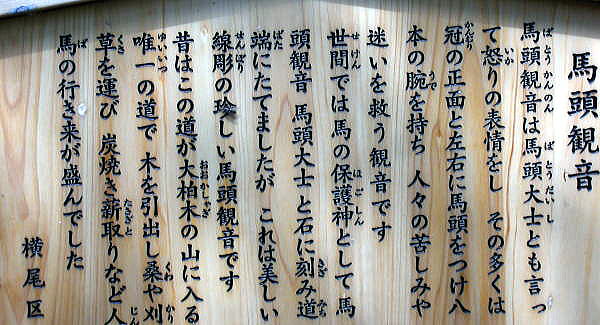 馬頭観音
馬頭観音は馬頭大士とも言っ
て怒りの表情をし その多くは
冠の正面と左右に馬頭をつけ八
本の腕を持ち 人々の苦しみや
迷いを救う観音です
世間では馬の保護神として馬
頭観音 馬頭大士と石に刻み道
端にたてましたが これは美しい
線彫の珍しい馬頭観音です
昔はこの道が大柏木の山に入る
唯一の道で 木を引出し桑や刈
草を運び 炭焼き薪取りなど人
馬の行き来が盛んでした
横尾区